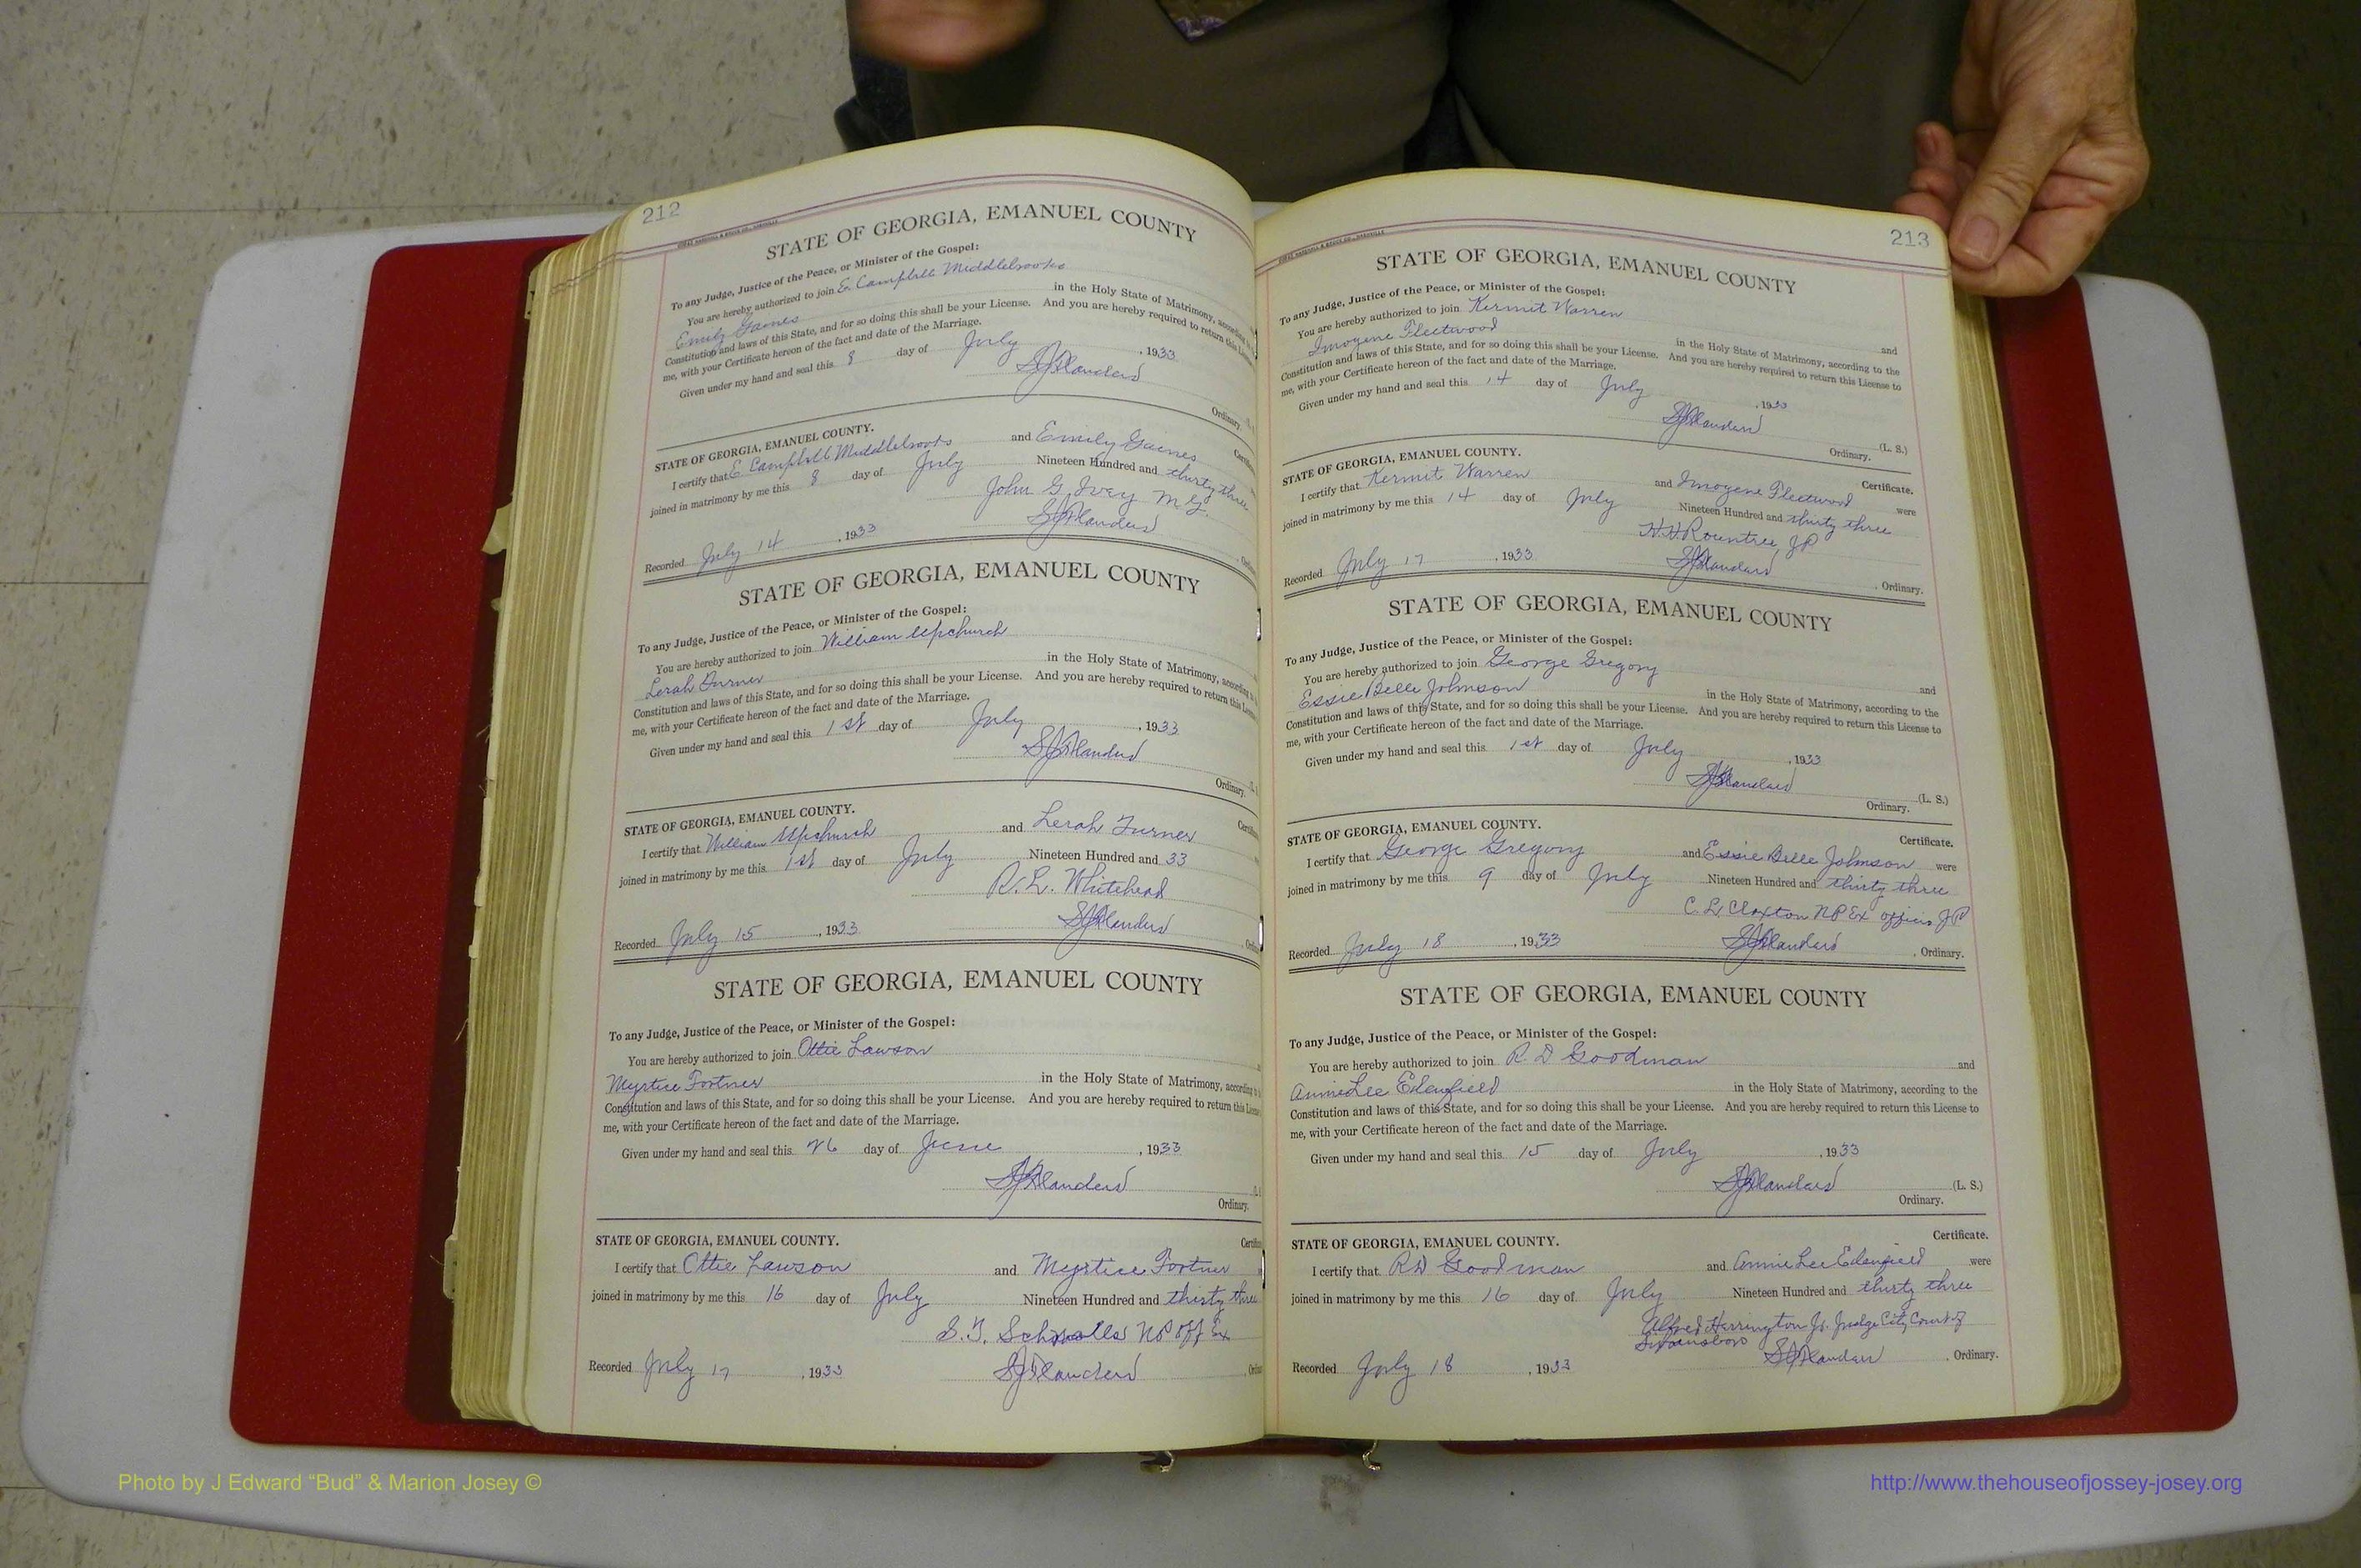 212
STATE OF GEORGIA, EMANUEL COUNTY
To any Judge, Justice of the Peace, or Minister of the Gospel:
You are hereby authorized to join E. Campbell Middlebrooks
Emily Gaines in the Holy State of Matrimony, according
Constitution and laws of this State, and for so doing this shall be your License. And you are hereby required to return this
me, with your Certificate hereon of the fact and date of the Marriage.
Given under my hand and seal this 8 day of July, 1933
SJFlanders
Ordinary.
STATE OF GEORGIA, EMANUEL COUNTY.
I certify that E Campbell Middlebrooks and Emily Gaines
joined in matrimony by me this 8 day of July Nineteen Hundred and thirty three
John G. Ivey M.G.
SJFlanders
Recorded July 14, 1933
STATE OF GEORGIA, EMANUEL COUNTY
To any Judge, Justice of the Peace, or Minister of the Gospel:
You are hereby authorized to join William Upchurch
Lerah Turner in the Holy State of Matrimony, according
Constitution and laws of this State, and for so doing this shall be your License. And you are hereby required to return this
me, with your Certificate hereon of the fact and date of the Marriage.
Given under my hand and seal this 1st day of July, 1933
SJFlanders
Ordinary.
STATE OF GEORGIA, EMANUEL COUNTY.
I certify that William Upchurch and Lerah Turner
joined in matrimony by me this 1st day of July Nineteen Hundred and 33
R. L. Whitehead
SJFlanders
Recorded July 15, 1933
STATE OF GEORGIA, EMANUEL COUNTY
To any Judge, Justice of the Peace, or Minister of the Gospel:
You are hereby authorized to join Ottie Lawson
Myrtice Fortner in the Holy State of Matrimony, according
Constitution and laws of this State, and for so doing this shall be your License. And you are hereby required to return this
me, with your Certificate hereon of the fact and date of the Marriage.
Given under my hand and seal this 26 day of June, 1933
SJFlanders
Ordinary.
STATE OF GEORGIA, EMANUEL COUNTY.
I certify that Ottie Lawson and Myrtice Fortner
joined in matrimony by me this 16 day of July Nineteen Hundred and thirty three
NP off Ex
SJFlanders
Recorded July 17, 1933
213
STATE OF GEORGIA, EMANUEL COUNTY
To any Judge, Justice of the Peace, or Minister of the Gospel:
You are hereby authorized to join Kermit Warren and
Imogene Fleetwood in the Holy State of Matrimony, according to the
Constitution and laws of this State, and for so doing this shall be your License. And you are hereby required to return this License to
me, with your Certificate hereon of the fact and date of the Marriage.
Given under my hand and seal this 14 day of July, 1933
SJFlanders (L. S.)
Ordinary.
STATE OF GEORGIA, EMANUEL COUNTY. Certificate.
I certify that Kermit Warren and Imogene Fleetwood were
joined in matrimony by me this 14 day of July Nineteen Hundred and thirty three
H.H. Rountree JP
Recorded July 17, 1933 SJFlanders, Ordinary.
STATE OF GEORGIA, EMANUEL COUNTY
To any Judge, Justice of the Peace, or Minister of the Gospel:
You are hereby authorized to join George Gregory and
Essie Belle Johnson in the Holy State of Matrimony, according to the
Constitution and laws of this State, and for so doing this shall be your License. And you are hereby required to return this License to
me, with your Certificate hereon of the fact and date of the Marriage.
Given under my hand and seal this 1st day of July, 1933
SJFlanders (L. S.)
Ordinary.
STATE OF GEORGIA, EMANUEL COUNTY. Certificate.
I certify that George Gregory and Essie Belle Johnson were
joined in matrimony by me this 9 day of July Nineteen Hundred and thirty three
C. L. Claxton NP Ex officio JP
Recorded July 18, 1933 SJFlanders, Ordinary.
STATE OF GEORGIA, EMANUEL COUNTY
To any Judge, Justice of the Peace, or Minister of the Gospel:
You are hereby authorized to join R. D Goodman and
Annie Lee Edenfield in the Holy State of Matrimony, according to the
Constitution and laws of this State, and for so doing this shall be your License. And you are hereby required to return this License to
me, with your Certificate hereon of the fact and date of the Marriage.
Given under my hand and seal this 15 day of July, 1933
SJFlanders (L. S.)
Ordinary.
STATE OF GEORGIA, EMANUEL COUNTY. Certificate.
I certify that R D Goodman and Annie Lee Edenfield were
joined in matrimony by me this 16 day of July Nineteen Hundred and thirty three
Alfred Herrington Jr. Judge City Court of
Swainsboro
Recorded July 18, 1933 SJFlanders, Ordinary.
Photo by J Edward “Bud” & Marion Josey ©
http://www.thehouseofjossey-josey.org